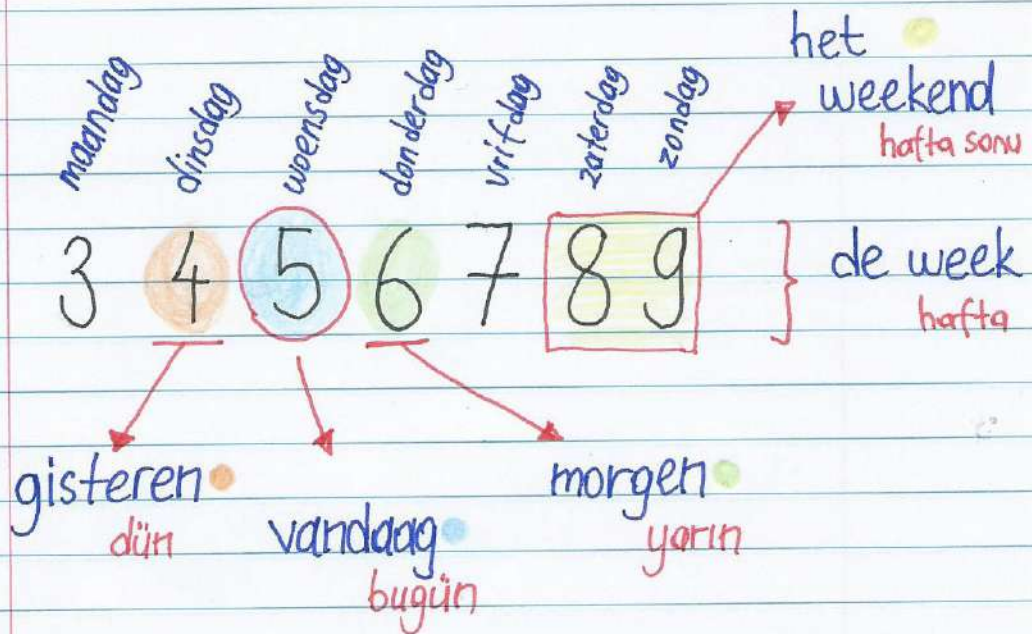 maandag dinsdag woensdag donderdag vrifdag zaterdag zondag
het
weekend
hafta sonu
3 4 5 6 7 8 9
de week
hafta
gisteren
dün
vandaag
bugün
morgen
yarın